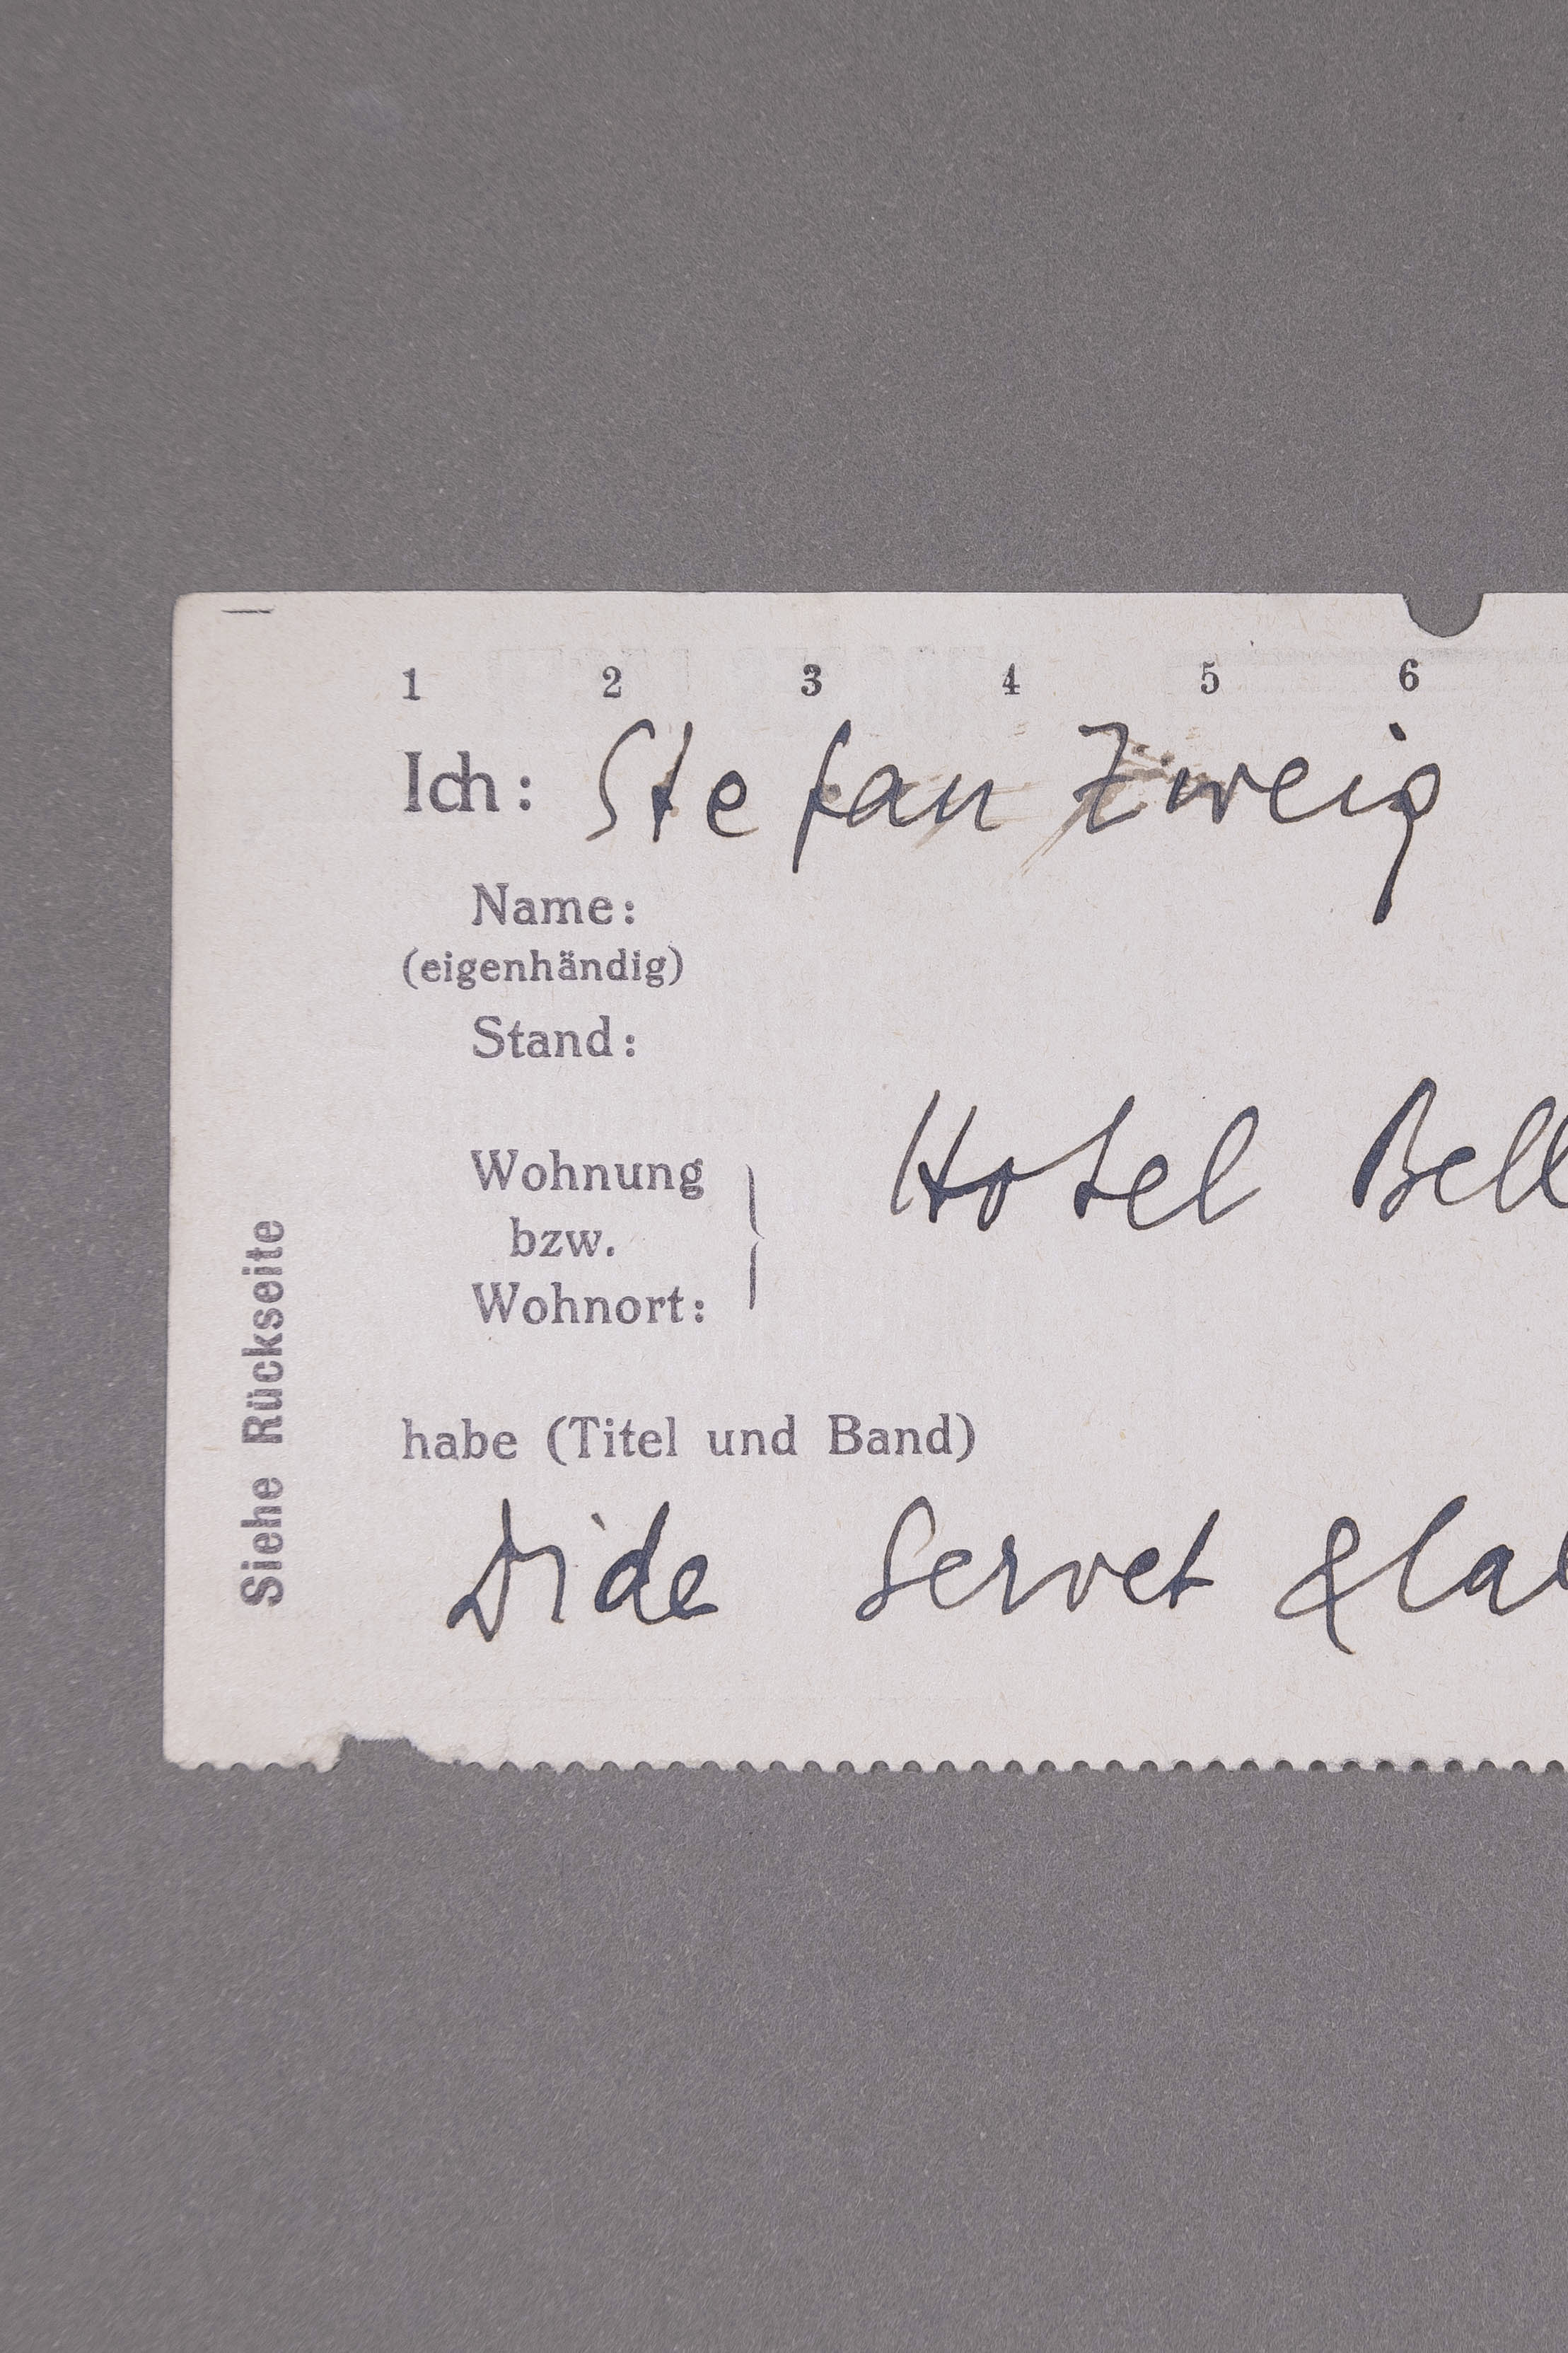 1 2 3 4 5 6
Ich: Stefan Zweig
Name:
(eigenhändig)
Stand:
Wohnung
bzw.
Wohnort:
Hotel Bell
habe (Titel und Band)
Dide Servet & Cal
Siehe Rückseite